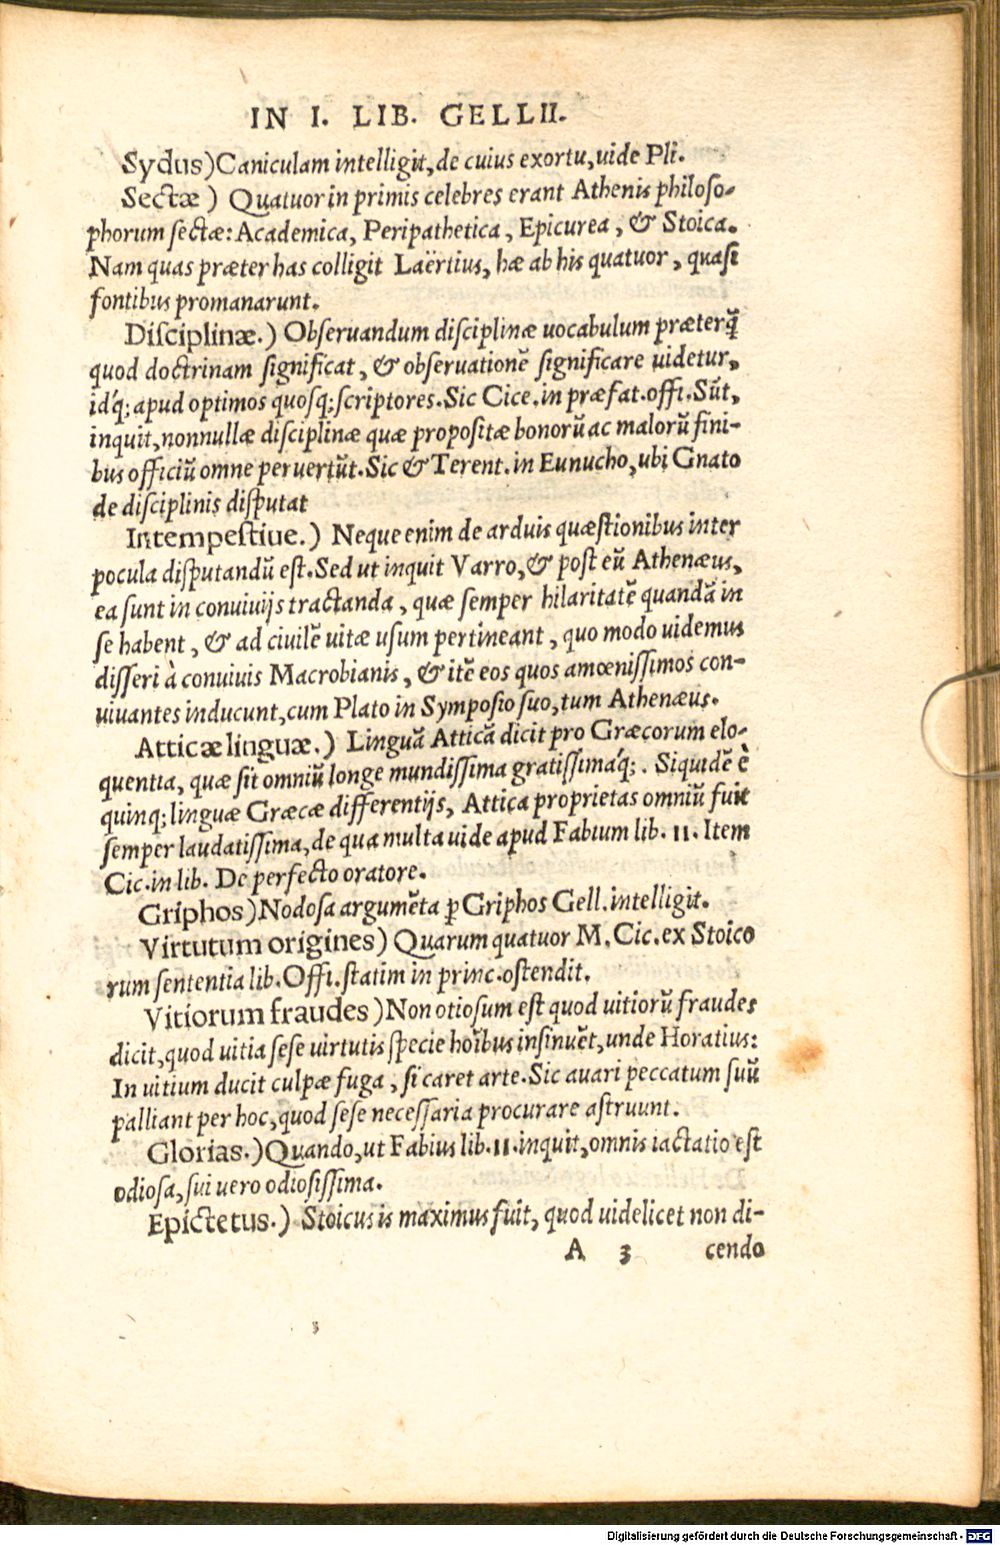 IN I. LIB. GELLII.
Sydus) Caniculam intelligit, de cuius exortu, uide Pli.
Sectæ) Quatuor in primis celebres erant Athenis philoso-
phorum sectæ: Academica, Peripathetica, Epicurea, & Stoica.
Nam quas præter has colligit Laërtius, hæ ab his quatuor, quasi
fontibus promanarunt.
Disciplinæ.) Obseruandum disciplinæ uocabulum præterq̃
quod doctrinam significat, & obseruationẽ significare uidetur,
idq́; apud optimos quosq; scriptores. Sic Cice. in præfat. offi. Sũt,
inquit, nonnullæ disciplinæ quæ propositæ bonorũ ac malorũ fini-
bus officiũ omne peruertũt. Sic & Terent. in Eunucho, ubi Gnato
de disciplinis disputat
Intempestiue.) Neque enim de arduis quæstionibus inter
pocula disputandũ est. Sed ut inquit Varro, & post eũ Athenæus,
ea sunt in conuiuijs tractanda, quæ semper hilaritatẽ quandã in
se habent, & ad ciuilẽ uitæ usum pertineant, quo modo uidemus
disseri à conuiuis Macrobianis, & itẽ eos quos amœnissimos con-
uiuantes inducunt, cum Plato in Symposio suo, tum Athenæus.
Atticæ linguæ.) Linguã Atticã dicit pro Græcorum elo-
quentia, quæ sit omniũ longe mundissima gratissimáq;. Siquidẽ è
quinq; linguæ Græcæ differentijs, Attica proprietas omniũ fuit
semper laudatissima, de qua multa uide apud Fabium lib. 11. Item
Cic. in lib. De perfecto oratore.
Griphos) Nodosa argumẽta ꝑ Griphos Gell. intelligit.
Virtutum origines) Quarum quatuor M. Cic. ex Stoico
rum sententia lib. Offi. statim in princ. ostendit.
Vitiorum fraudes) Non otiosum est quod uitiorũ fraudes
dicit, quod uitia sese uirtutis specie hoĩbus insinuẽt, unde Horatius:
In uitium ducit culpæ fuga, si caret arte. Sic auari peccatum suũ
palliant per hoc, quod sese necessaria procurare astruunt.
Glorias.) Quando, ut Fabius lib. 11. inquit, omnis iactatio est
odiosa, sui uero odiosissima.
Epictetus.) Stoicus is maximus fuit, quod uidelicet non di-
A 3 cendo
Digitalisierung gefördert durch die Deutsche Forschungsgemeinschaft - DFG